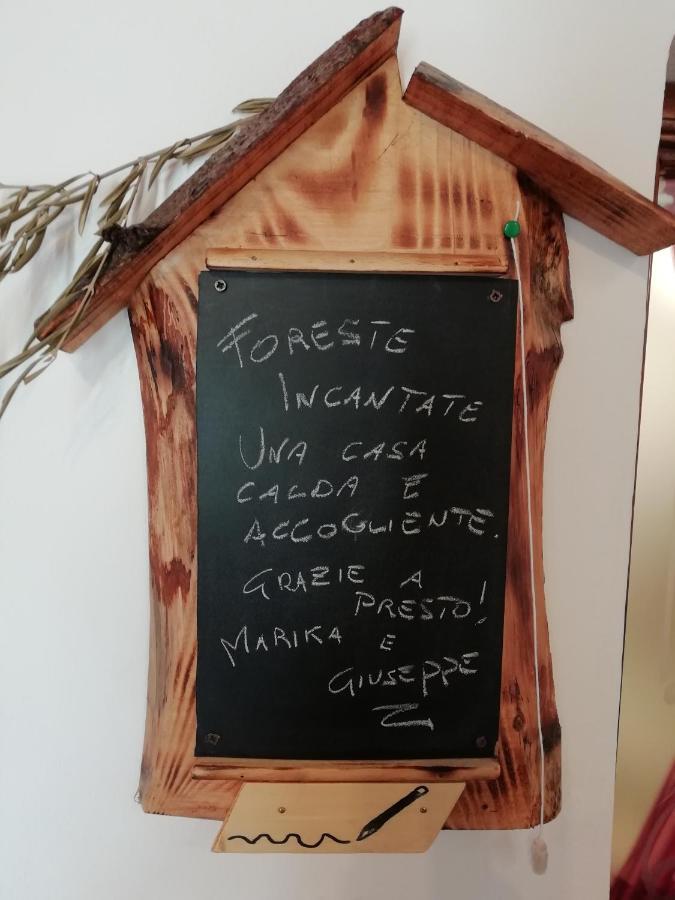 FORESTE
INCANTATE
UNA CASA
CALDA E
ACCOGLIENTE.
GRAZIE A
PRESTO!
MARIKA E
GIUSEPPE